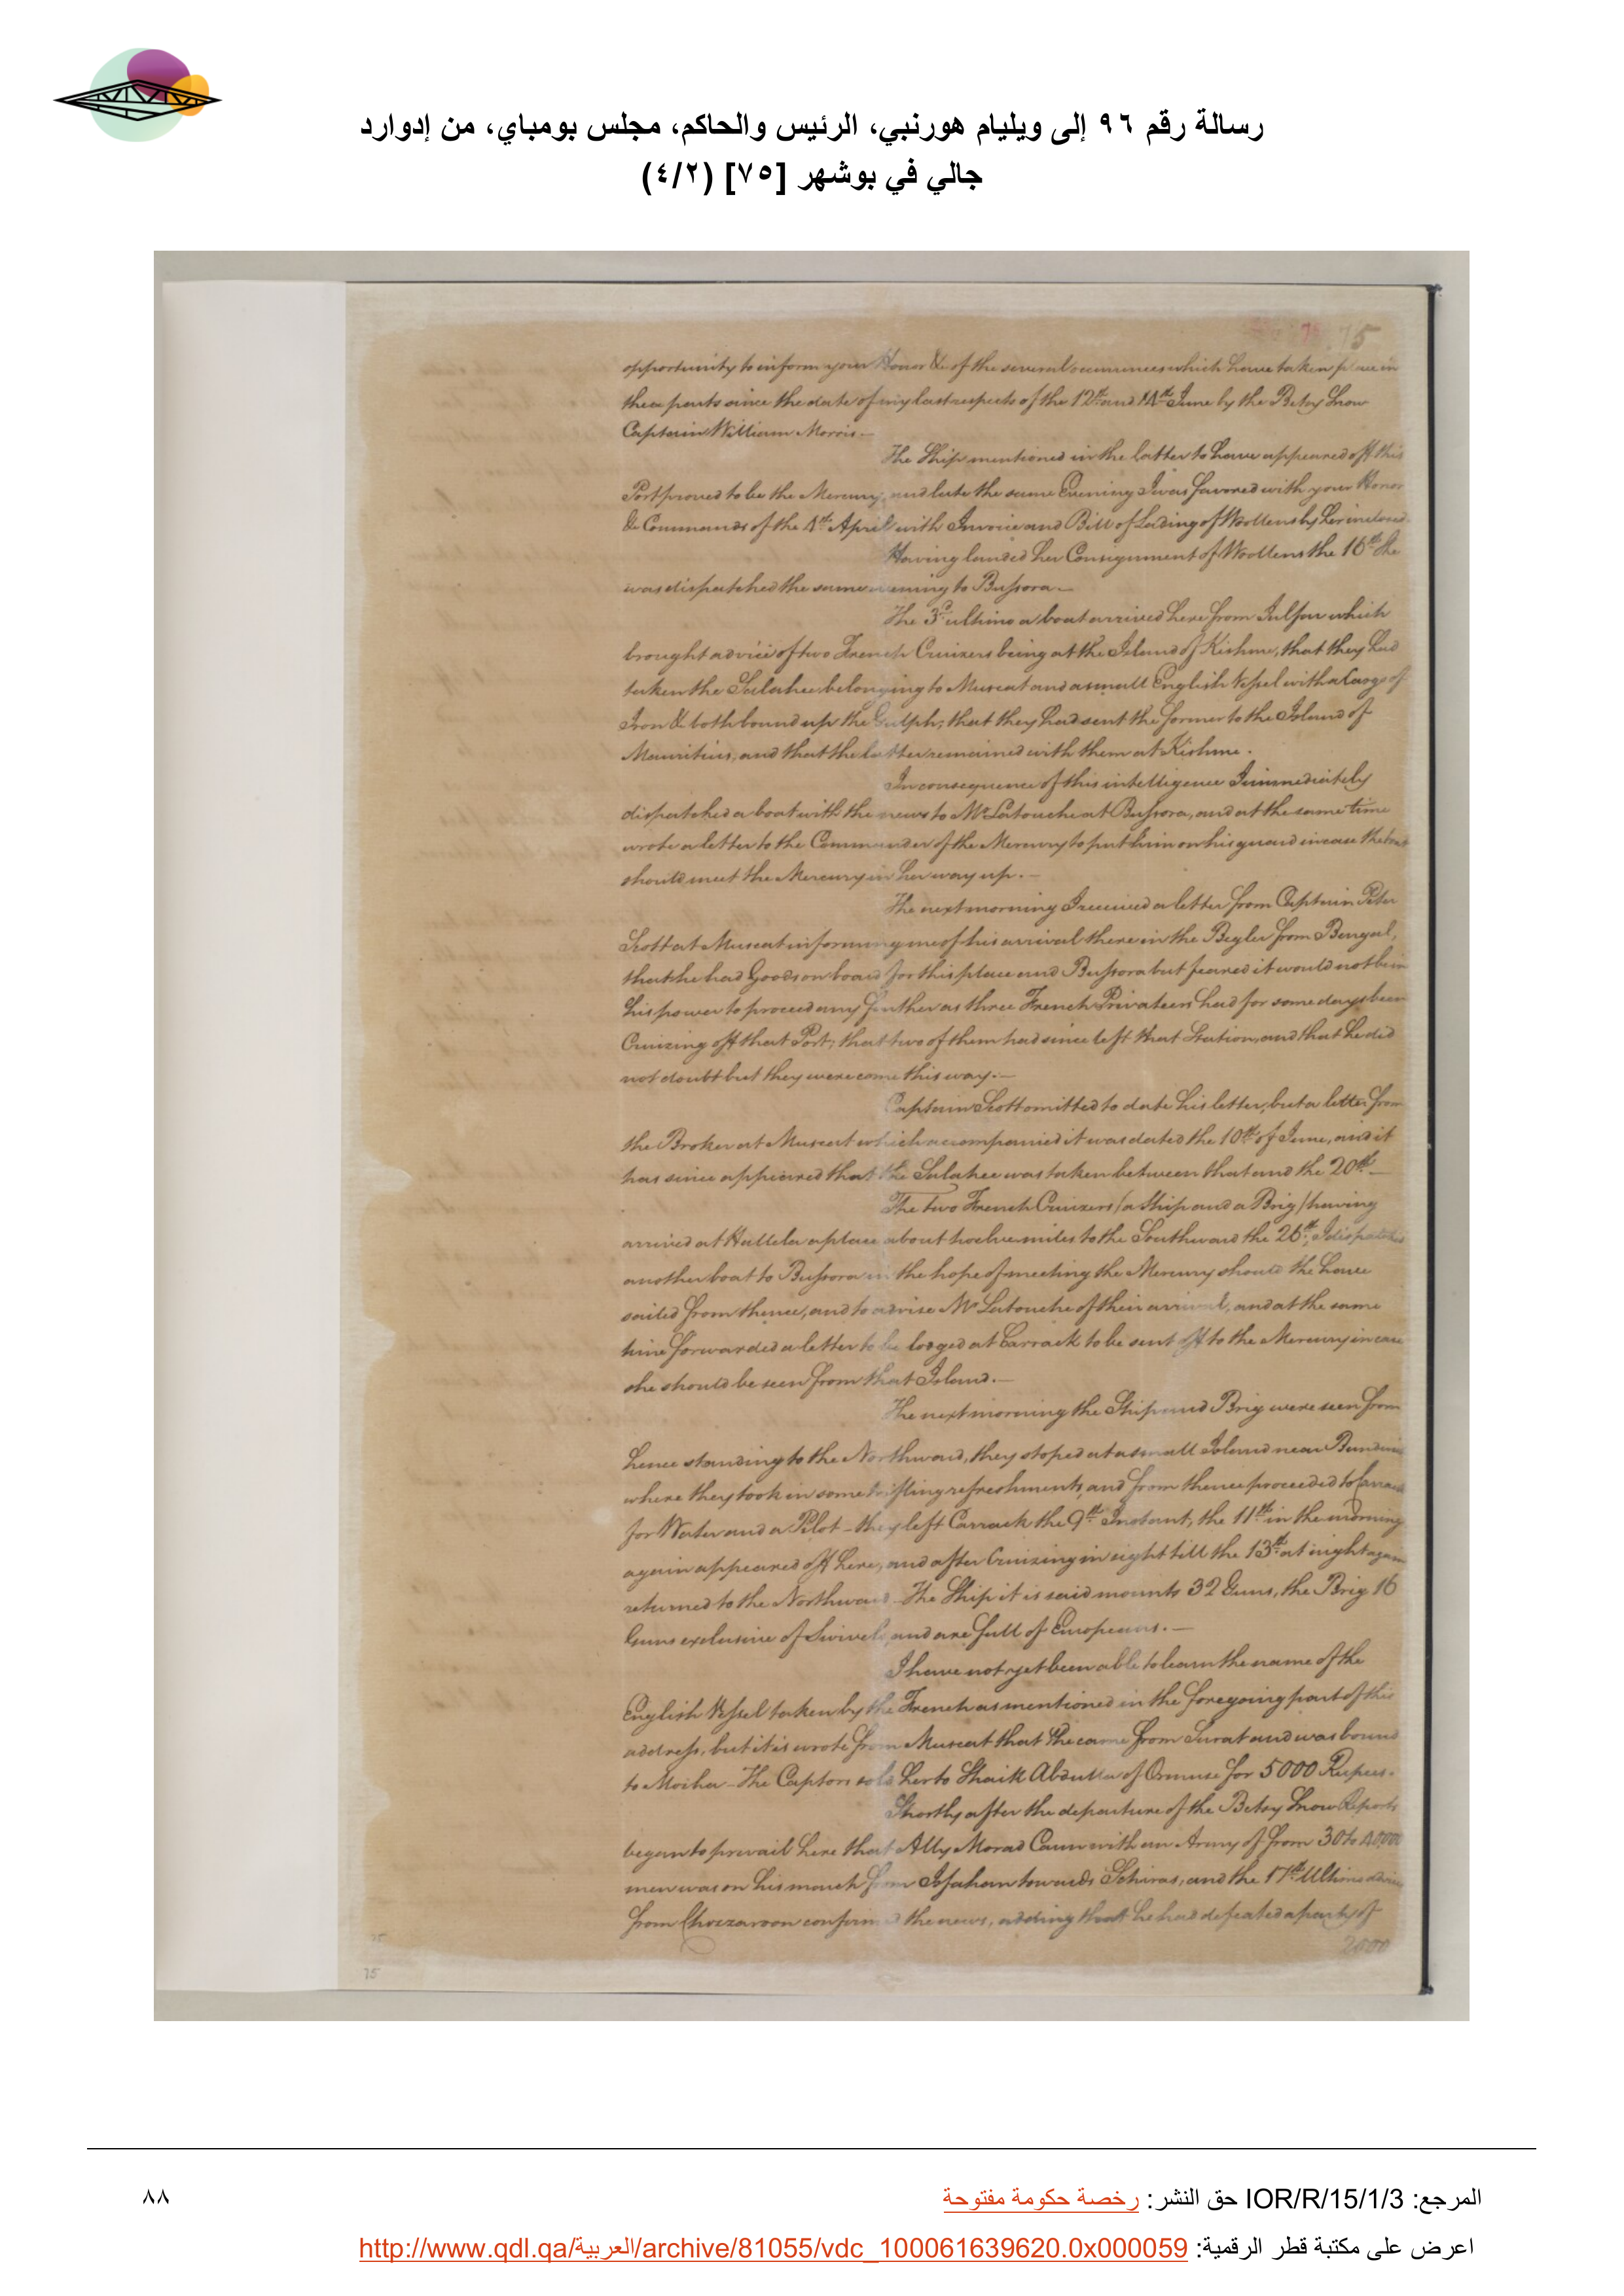 رسالة رقم ٩٦ إلى ويليام هورنبي، الرئيس والحاكم، مجلس بومباي، من إدوارد
جالي في بوشهر [٧٥] (٤/٢)
75
opportunity to inform your Honor &c of the several occurrences which have taken place in
these parts since the date of my last respects of the 12th and 14th June by the Betsy Snow
Captain William Morris.—
The Ship mentioned in the latter to have appeared off this
Port proved to be the Mercury, and late the same Evening I was favored with your Honor
&c Commands of the 4th April with Invoice and Bill of Lading of Woollens by her inclosed.
Having landed her Consignment of Woollens the 16th She
was dispatched the same evening to Bussora.—
The 3d ultimo a boat arrived here from Julfar which
brought advice of two French Cruizers being at the Island of Kishme, that they had
taken the Salahee belonging to Muscat and a small English Vessel with a Cargo of
Iron &c both bound up the Gulph; that they had sent the former to the Island of
Mauritius, and that the latter remained with them at Kishme.
In consequence of this intelligence I immediately
dispatched a boat with the news to Mr Latouche at Bussora, and at the same time
wrote a letter to the Commander of the Mercury to put him on his guard in case the boat
should meet the Mercury in her way up.—
The next morning I received a letter from Captain Peter
Scott at Muscat informing me of his arrival there in the Begler from Bengal,
that he had Goods on board for this place and Bussora but feared it would not be in
his power to proceed any further as three French Privateers had for some days been
Cruizing off that Port; that two of them had since left that Station, and that he did
not doubt but they were come this way.—
Captain Scott omitted to date his letter, but a letter from
the Broker at Muscat which accompanied it was dated the 10th of June, and it
has since appeared that the Salahee was taken between that and the 20th—
The two French Cruizers (a Ship and a Brig) having
arrived at Hallela a place about twelve miles to the Southward the 26th, I dispatched
another boat to Bussora in the hope of meeting the Mercury should she have
sailed from thence, and to advise Mr Latouche of their arrival, and at the same
time forwarded a letter to be lodged at Carrack to be sent off to the Mercury in case
she should be seen from that Island.—
The next morning the Ship and Brig were seen from
hence standing to the Northward, they stoped at a small Island near
where they took in some trifling refreshments, and from thence proceeded to Carrack
for Water and a Pilot – they left Carrack the 9th Instant, the 11th in the morning
again appeared off here, and after Cruizing in sight till the 13th at night again
returned to the Northward – The Ship it is said mounts 32 Guns, the Brig 16
Guns exclusive of Swivels, and are full of Europeans.—
I have not yet been able to learn the name of the
English Vessel taken by the French as mentioned in the foregoing part of this
address, but it is wrote from Muscat that She came from Surat and was bound
to Mocha – The Captors sold her to Shaik Abdulla of Ormuse for 5000 Rupees.
Shortly after the departure of the Betsy Snow Reports
began to prevail here that Ally Morad Caun with an Army of from 30 to 40,000
men was on his march from Isfahan towards Schiras, and the 17th Ultimo advices
from confirmed the news, adding that he had defeated a party of
2000
75
المرجع: IOR/R/15/1/3 حق النشر: رخصة حكومة مفتوحة
٨٨
اعرض على مكتبة قطر الرقمية: http://www.qdl.qa/العربية/archive/81055/vdc_100061639620.0x000059